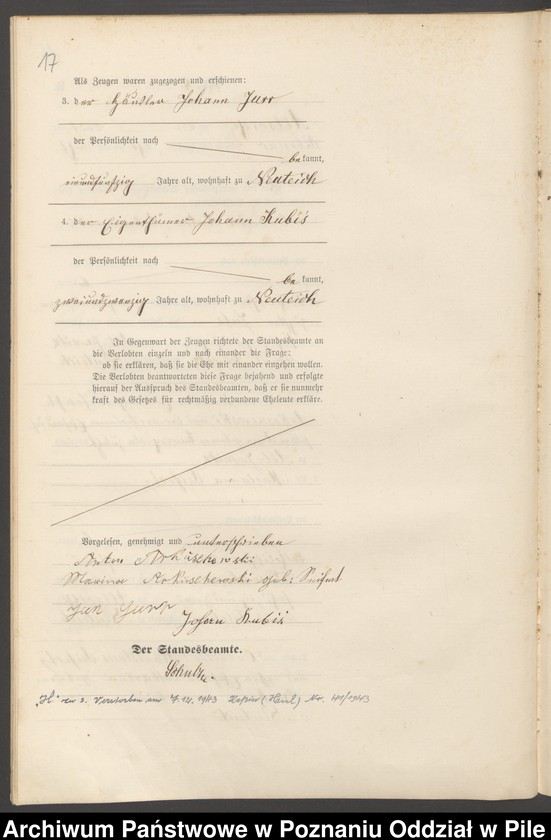 17
Als Zeugen waren zugezogen und erschienen:
3. der Häusler Johann Jurr
der Persönlichkeit nach
be kannt,
einundfünfzig Jahre alt, wohnhaft zu Neuteich
4. der Eigenthümer Johann Kubis
der Persönlichkeit nach
be kannt,
zweiundzwanzig Jahre alt, wohnhaft zu Neuteich
In Gegenwart der Zeugen richtete der Standesbeamte an
die Verlobten einzeln und nach einander die Frage:
ob sie erklären, daß sie die Ehe mit einander eingehen wollen.
Die Verlobten beantworteten diese Frage bejahend und erfolgte
hierauf der Ausspruch des Standesbeamten, daß er sie nunmehr
kraft des Gesetzes für rechtmäßig verbundene Eheleute erkläre.
Vorgelesen, genehmigt und unterschrieben
Anton
Arkuschewski geb: Seifert
Johann Kubis
Der Standesbeamte.
Schulz.
"H" verstorben am 7.12.1943 (Havel) Nr. 411/1943
Archiwum Państwowe w Poznaniu Oddział w Pile